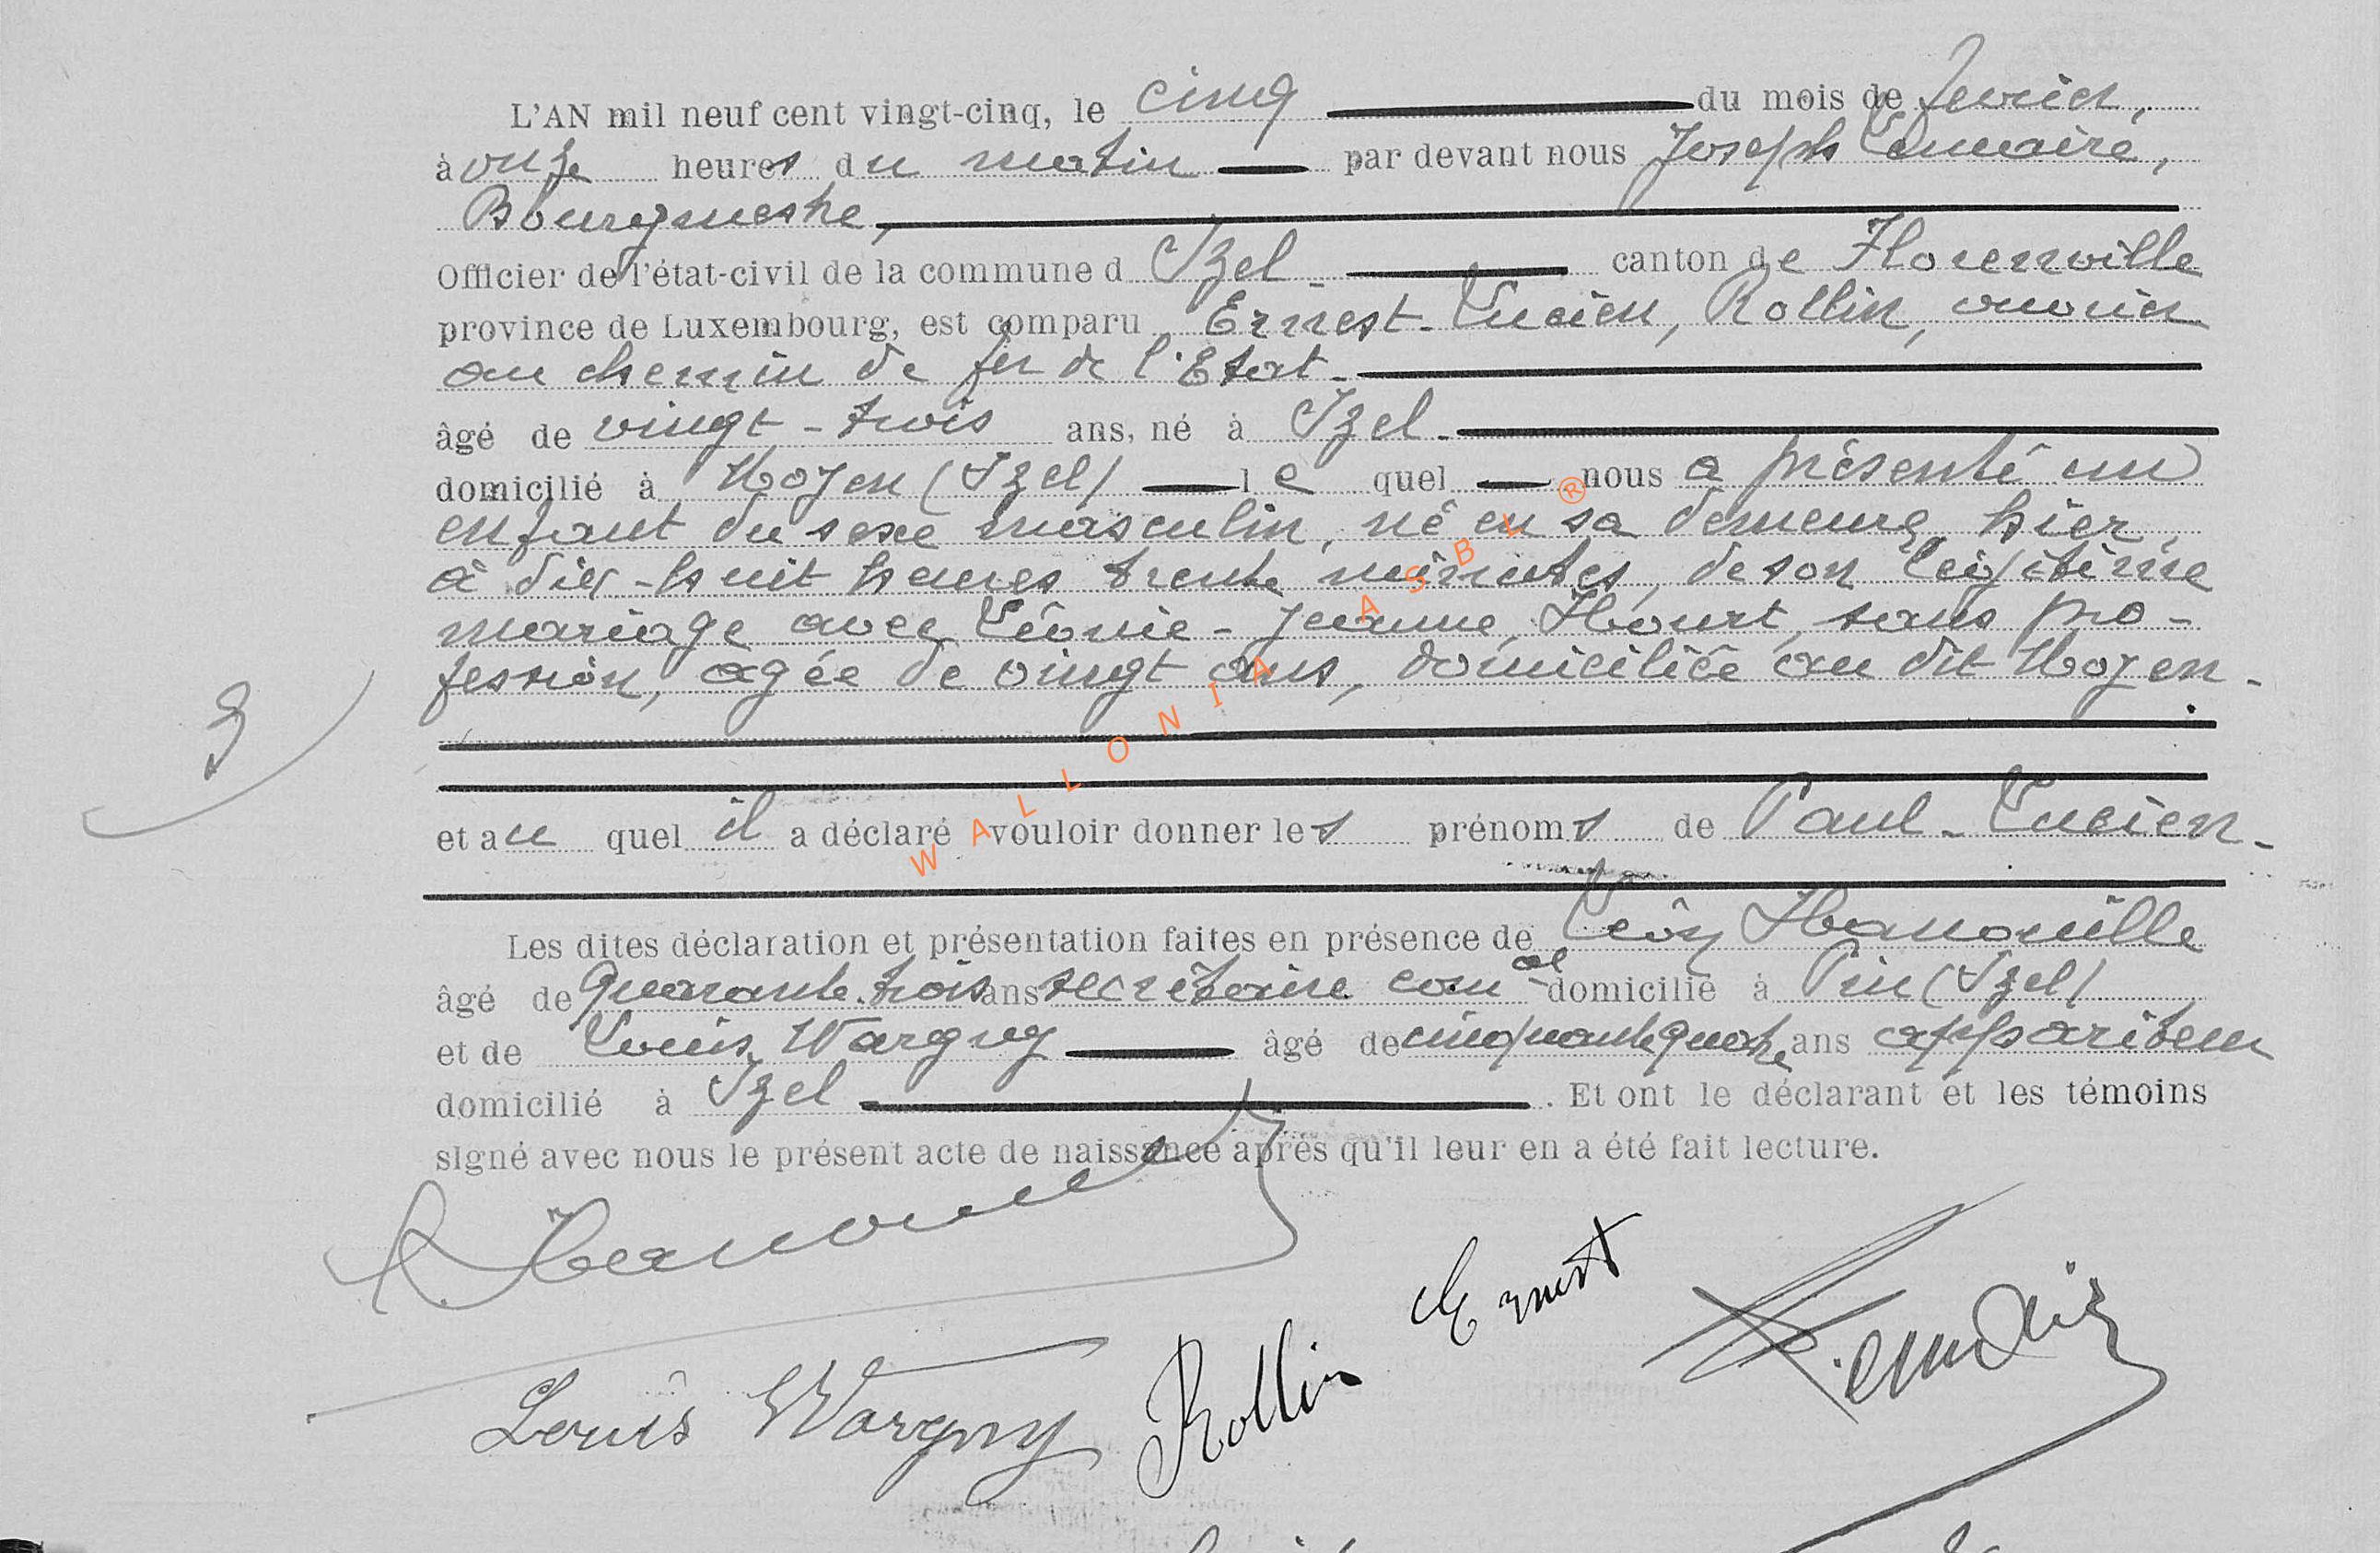 L'AN mil neuf cent vingt-cinq, le cinq du mois de fevrier,
à onze heures du matin par devant nous Joseph Lemaire,
Bourgmestre,
Officier de l'état-civil de la commune d Izel canton de Florenville
province de Luxembourg, est comparu Ernest-Lucien, Rollin, ouvrier
au chemin de fer de l'Etat.
âgé de vingt-trois ans, né à Izel.
domicilié à Moyen (Izel) le quel nous a présenté un
enfant du sexe masculin, né en sa demeure, hier,
à dix-huit heures trente minutes, de son légitime
mariage avec Léonie-Jeanne, Hourt, sans pro-
fession, agée de vingt ans, domiciliée au dit Moyen.
3
et au quel il a déclaré vouloir donner les prénoms de Paul-Lucien.
Les dites déclaration et présentation faites en présence de Léon Hanouille
âgé de quarante-trois ans secrétaire comal domicilié à Pin (Izel)
et de Louis Wargny âgé de cinquante quatre ans appariteur
domicilié à Izel . Et ont le déclarant et les témoins
signé avec nous le présent acte de naissance après qu'il leur en a été fait lecture.
Louis Wargny
Rollin Ernest
Lemaire
WALLONIA ASBL ®